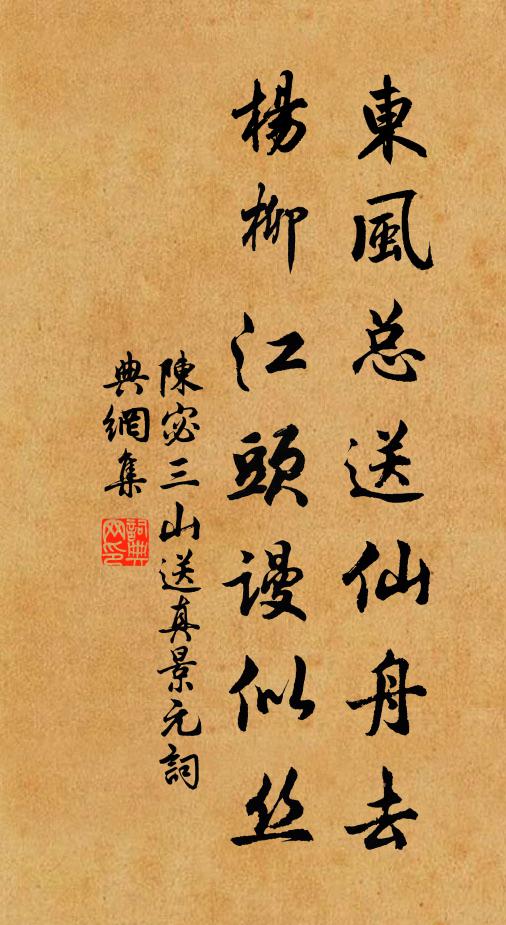 東風总送仙舟去
楊柳江頭謾似丝
陳宓三山送真景元詞
典網集
詞典網印